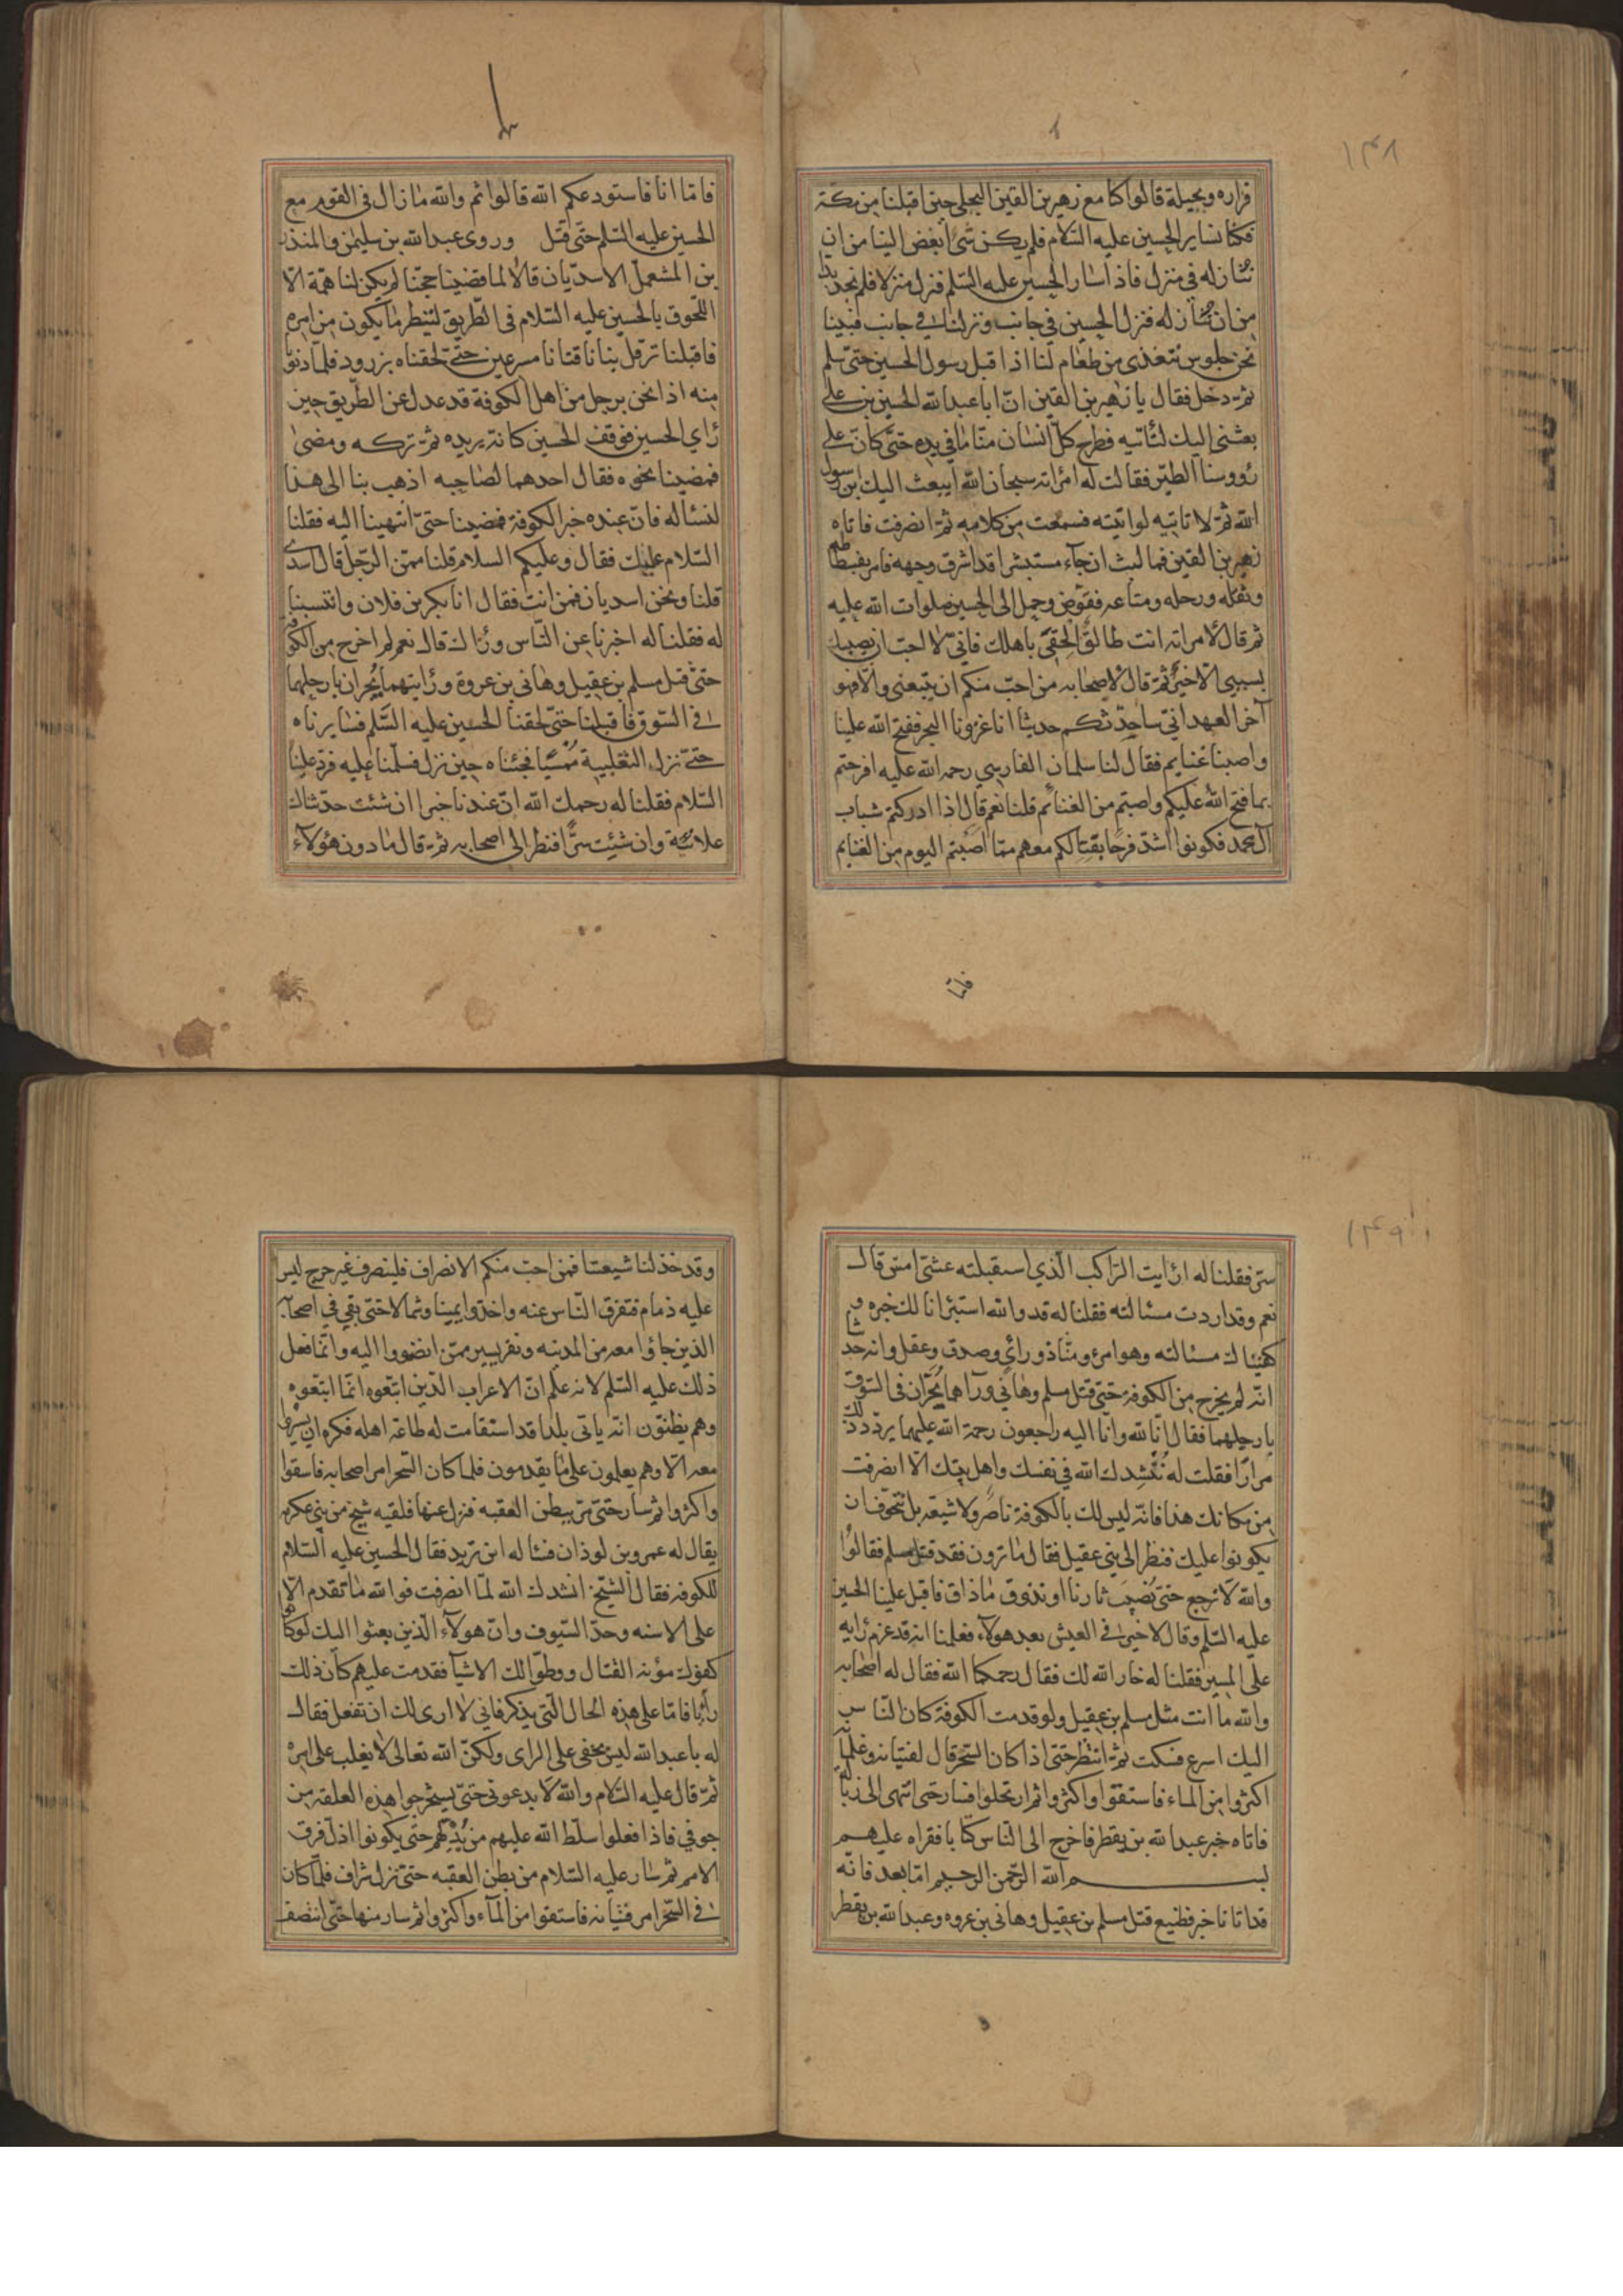 ١٤٨
فزاره وبجيلة قالوا كنا مع زهير بن القين البجلي حين اقبلنا من مكة
فكنا نساير الحسين عليه السّلام فلم يكن شئ ابغض الينا من ان
ننازله في منزل فاذا سار الحسين عليه السّلم فنزل منزلا فلم نجد بدا
من ان ننازله فنزل الحسين في جانب ونزلنا في جانب فبينا
نحن جلوس نتغذى من طعام لنا اذ اقبل رسول الحسين حتّى سلم
ثمّ دخل فقال يا زهير بن القين انّ ابا عبد الله الحسين بن علي
بعثني اليك لتأتيه فطرح كلّ انسان منّا ما في يده حتّى كانّ على
رؤوسنا الطير فقالت له امرأته سبحان الله ايبعث اليك ابن رسول
الله ثمّ لا تاتيه لو اتيته فسمعت من كلامه ثمّ انصرفت فاتاه
زهير بن القين فما لبث ان جآء مستبشرا قد اشرق وجهه فامر بفسطاطه
وثقله ورحله ومتاعه فقوّض وحمل الى الحسين صلوات الله عليه
ثم قال لامراته انت طالق الحقي باهلك فانّي لا احب ان يصيبك
بسببي الا خير ثمّ قال لاصحابه من احبّ منكم ان يتبعني والا فهو
آخر العهد انّي ساحدّثكم حديثا انا غزونا البحر ففتح الله علينا
واصبنا غنايم فقال لنا سلمان الفارسي رحمه الله عليه افرحتم
بما فتح الله عليكم واصبتم من الغنائم قلنا نعم قال اذا ادركتم شباب
آل محمد فكونوا اشدّ فرحا بقتالكم معهم ممّا اصبتم اليوم من الغنايم
فامّا انا فاستودعكم الله قالوا ثم والله ما زال في القوم مع
الحسين عليه السّلم حتّى قتل وروى عبد الله بن سليمن والمنذر
بن المشمعلّ الاسديّان قالا لما قضينا حجّنا لم يكن لنا همّة الّا
اللّحوق بالحسين عليه السّلام في الطّريق لننظر ما يكون من امره
فاقبلنا ترقل بنا ناقتانا مسرعين حتّى لحقناه بزرود فلمّا دنونا
منه اذا نحن برجل من اهل الكوفة قد عدل عن الطّريق حين
رأي الحسين فوقف الحسين كانه يريده ثمّ تركه ومضى
فمضينا نحوه فقال احدهما لصاحبه اذهب بنا الى هذا
لنسئاله فانّ عنده خبر الكوفة فمضينا حتّى انتهينا اليه فقلنا
السّلام عليك فقال وعليكم السلام قلنا ممّن الرّجل قال اسدي
قلنا ونحن اسديان فمن انت فقال انا بكر بن فلان وانتسبنا
له فقلنا له اخبرنا عن النّاس وراك قال نعم لم اخرج من الكوفة
حتّى قتل مسلم بن عقيل وهاني بن عروة ورأيتهما يُجران بارجلهما
في السّوق فاقبلنا حتّى لحقنا الحسين عليه السّلم فسايرناه
حتّى نزل الثعلبية مُمسيا فجئناه حين نزل فسلّمنا عليه فردّ علينا
السّلام فقلنا له رحمك الله انّ عندنا خبرا ان شئت حدّثناك
علانية وان شيئت سرًّا فنظر الى اصحابه ثمّ قال ما دون هؤلآء
١٤٩
ستر فقلنا له ارايت الرّاكب الّذي استقبلته عشيّ امس قال
نعم وقد اردت مسئالته فقلنا له قد والله استبرانا لك خبره و
كفيناك مسئالته وهو امرؤ منّا ذو رأي وصدق وعقل وانه حدثنا
انّه لم يخرج من الكوفة حتّى قتل مسلم وهاني ورآهما يُجرّان في السّوق
بارجلهما فقال انّا لله وانّا اليه راجعون رحمة الله عليهما يردّد ذلك
مرارًا فقلت له نُنشدك الله في نفسك واهل بيتك الّا انصرفت
من مكانك هذا فانّه ليس لك بالكوفة ناصر ولا شيعة بل نتخوّف ان
يكونوا عليك فنظر الى بني عقيل فقال ما ترون فقد قتل مسلم فقالوا
والله لا نرجع حتّى نُصيب ثارنا او نذوق ما ذاق فاقبل علينا الحسين
عليه السّلم وقال لا خير في العيش بعد هولآء فعلمنا انه قد عزم رأيه
على المسير فقلنا له خار الله لك فقال رحمكما الله فقال له اصحابه
والله ما انت مثل مسلم بن عقيل ولو قدمت الكوفة كان النّاس
اليك اسرع فسكت ثمّ انتظر حتّى اذا كان السّحر قال لفتيانه وغلمانه
اكثروا من الماء فاستقوا واكثروا ثم ارتحلوا فسار حتى انتهى الى زبالة
فاتاه خبر عبد الله بن يقطر فاخرج الى النّاس كتابا فقراه عليهم
بسم الله الرّحمن الرحيم امّا بعد فانّه
قد اتانا خبر فظيع قتل مسلم بن عقيل وهاني بن عروه وعبد الله بن يقطر
وقد خذلنا شيعتنا فمن احبّ منكم الانصراف فلينصرف غير حرج ليس
عليه ذمام فتفرق النّاس عنه واخذوا يمينا وشمالا حتّى بقي في اصحابه
الذين جاؤا معه من المدينه ونفر يسير ممّن انضووا اليه وانّما فعل
ذلك عليه السّلم لانه علم انّ الاعراب الّذين اتبعوه انّما اتبعوه
وهم يظنّون انّه ياتي بلدا قد استقامت له طاعة اهله فكره ان يسيروا
معه الّا وهم يعلمون على ما يقدمون فلما كان السّحر امر اصحابه فاستقوا
واكثروا ثم سار حتّى مرّ ببطن العقبه فنزل عنها فلقيه شيخ من بني عكرمه
يقال له عمرو بن لوذان فسئاله اين تريد فقال الحسين عليه السّلام
للكوفه فقال الشّيخ انشدك الله لمّا انصرفت فوالله ما تقدم الّا
على الاسنه وحدّ السّيوف وانّ هولآء الّذين بعثوا اليك لو كانوا
كفوك مؤنه القتال ووطّوا لك الاشيآ فقدمت عليهم كان ذلك
رأيا فامّا على هذه الحال الّتي يذكر فاني لا ارى لك ان تفعل فقال
له يا عبد الله ليس يخفى على الراى ولكنّ الله تعالى لا يغلب على امره
ثمّ قال عليه السّلام والله لا يدعوني حتّى يستخرجوا هذه العلقه من
جوفي فاذا فعلوا سلّط الله عليهم من يُذِلّهم حتّى يكونوا اذلّ فرق
الامم ثم سار عليه السّلام من بطن العقبه حتّى نزل شراف فلمّا كان
في السّحر امر فتيانه فاستقوا من المآء واكثروا ثم سار منها حتّى انتصف